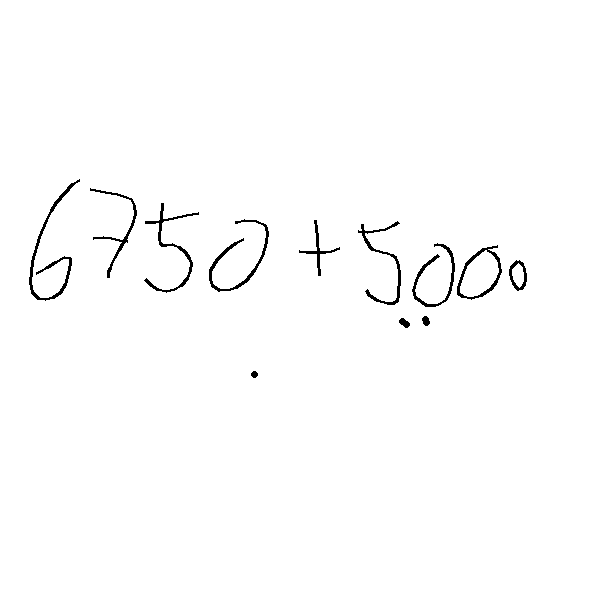 6750 + 5000